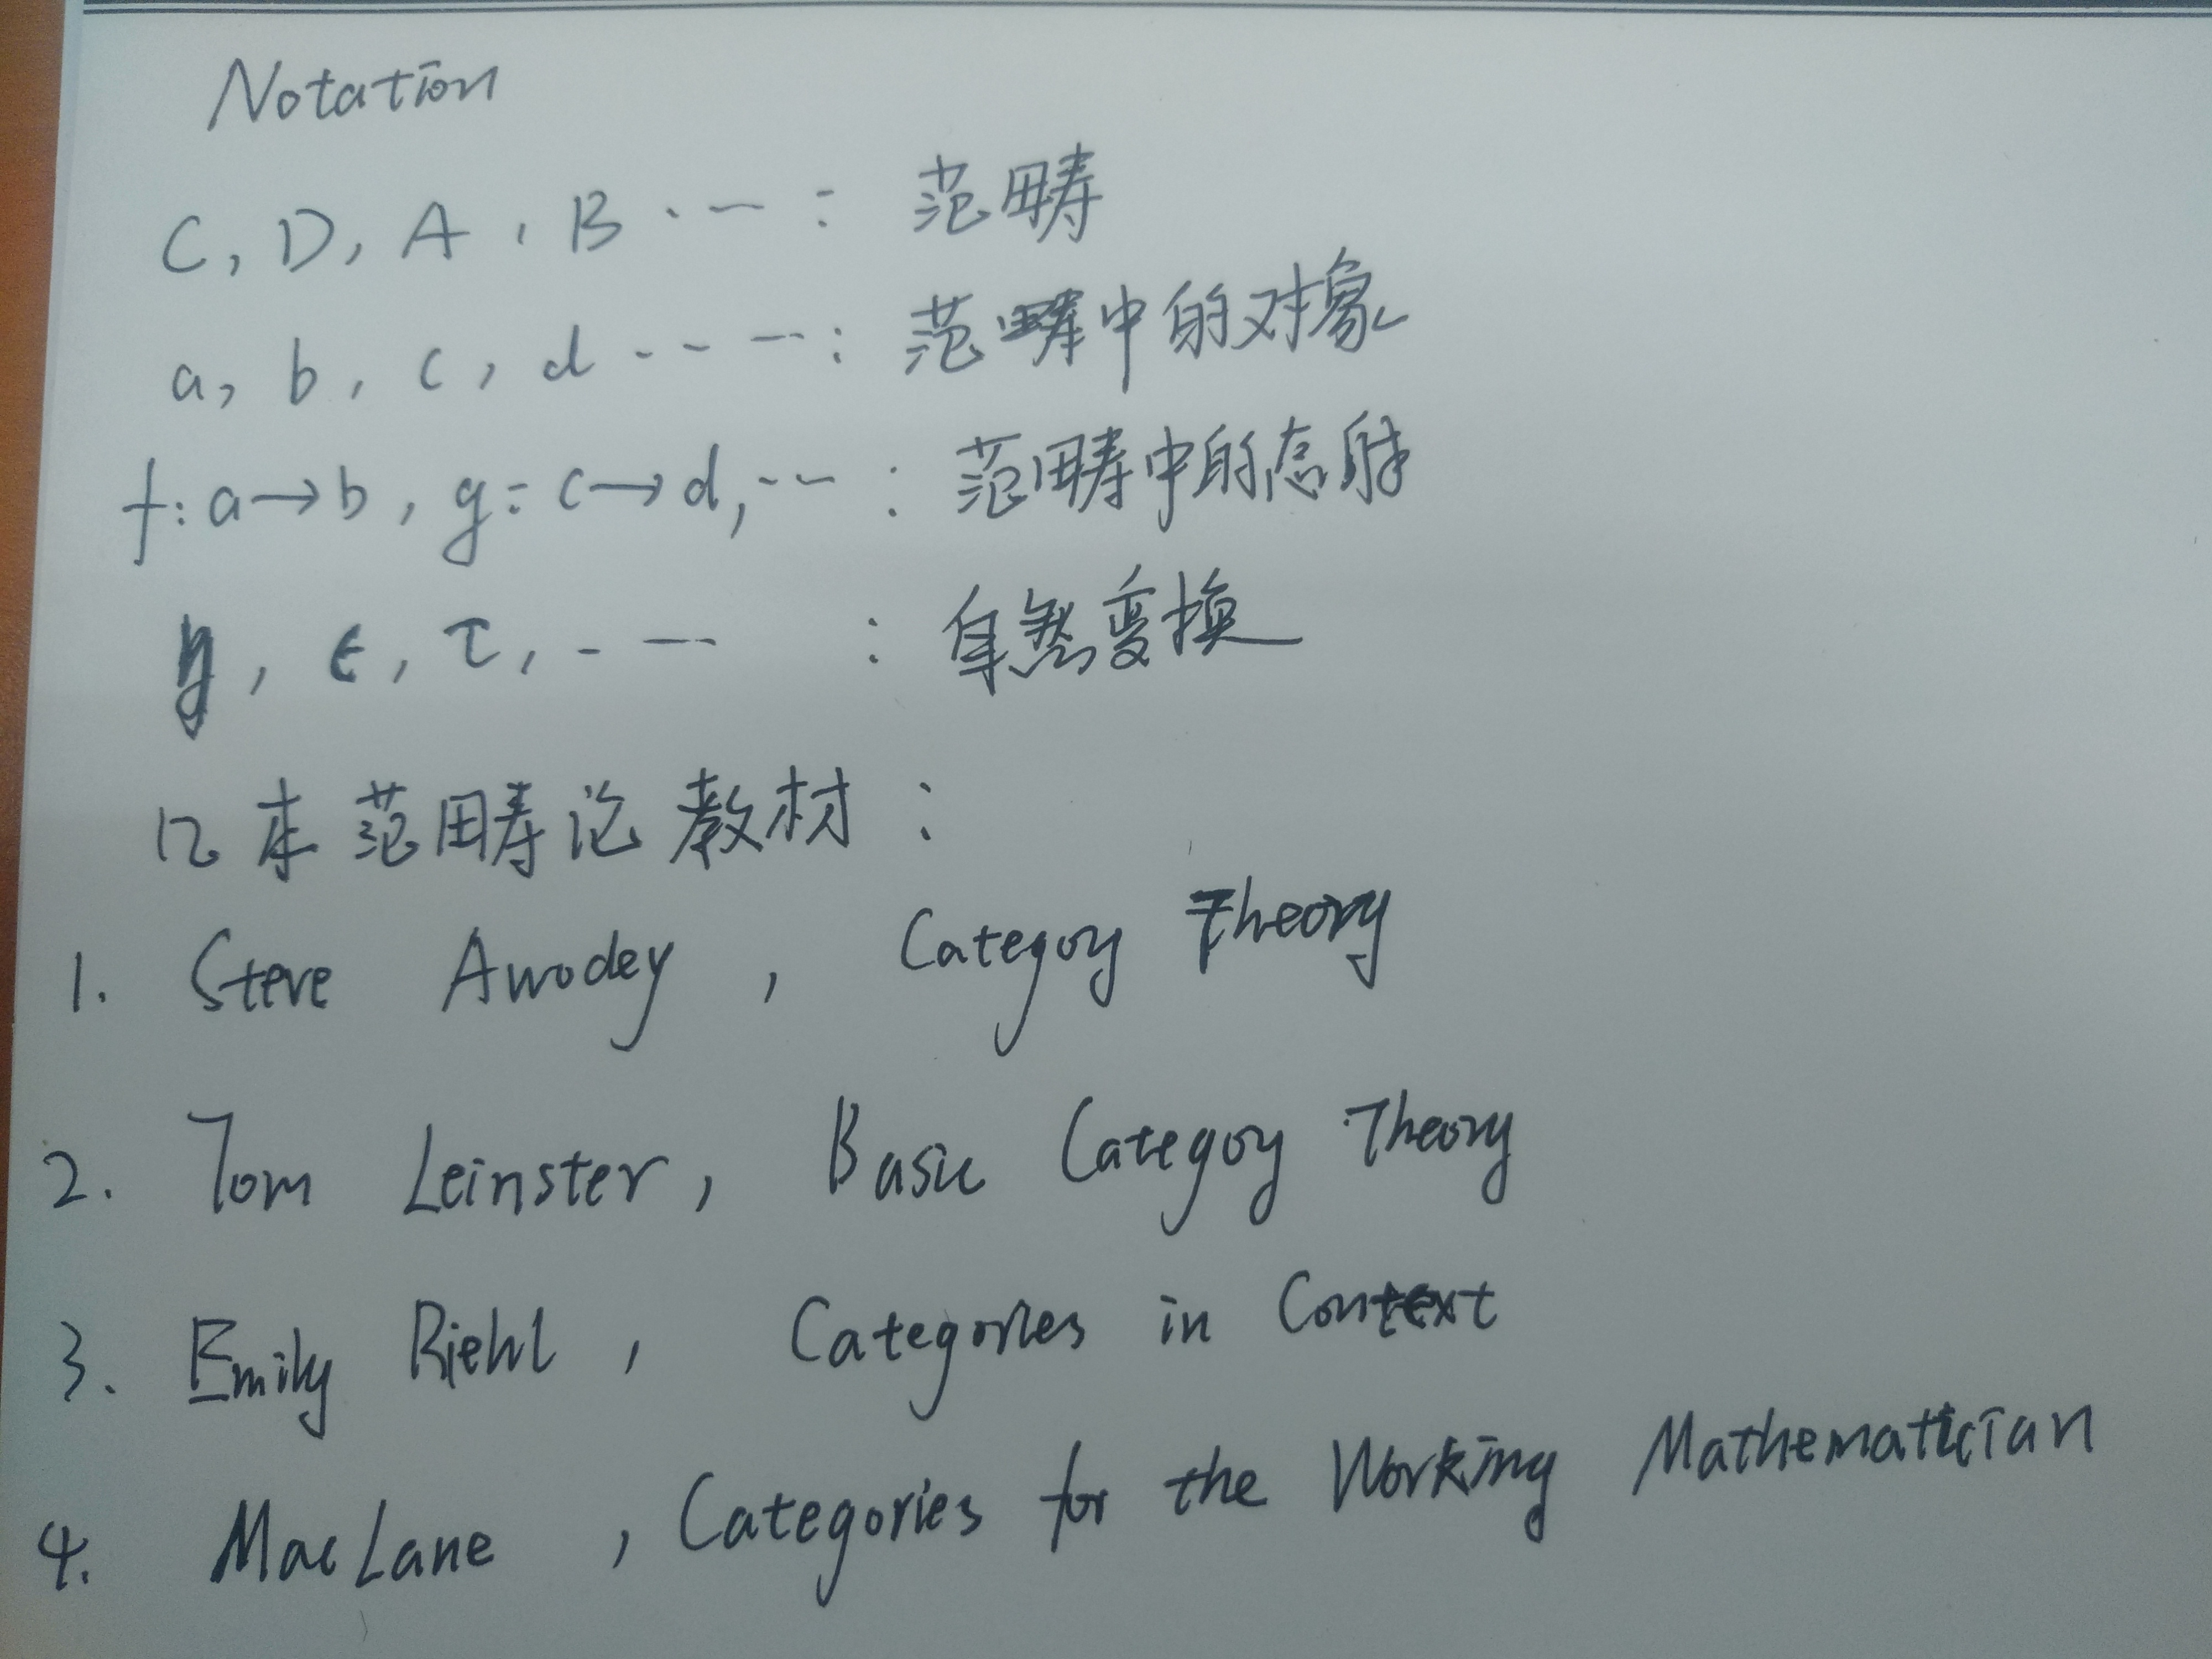 Notation
C, D, A, B ……: 范畴
a, b, c, d ……: 范畴中的对象
f: a→b, g: c→d, ……: 范畴中的态射
η, ε, τ, …… : 自然变换
几本范畴论教材:
1. Steve Awodey, Categoy Theory
2. Tom Leinster, Basic Categoy Theory
3. Emily Riehl, Categories in Context
4. MacLane, Categories for the Working Mathematician